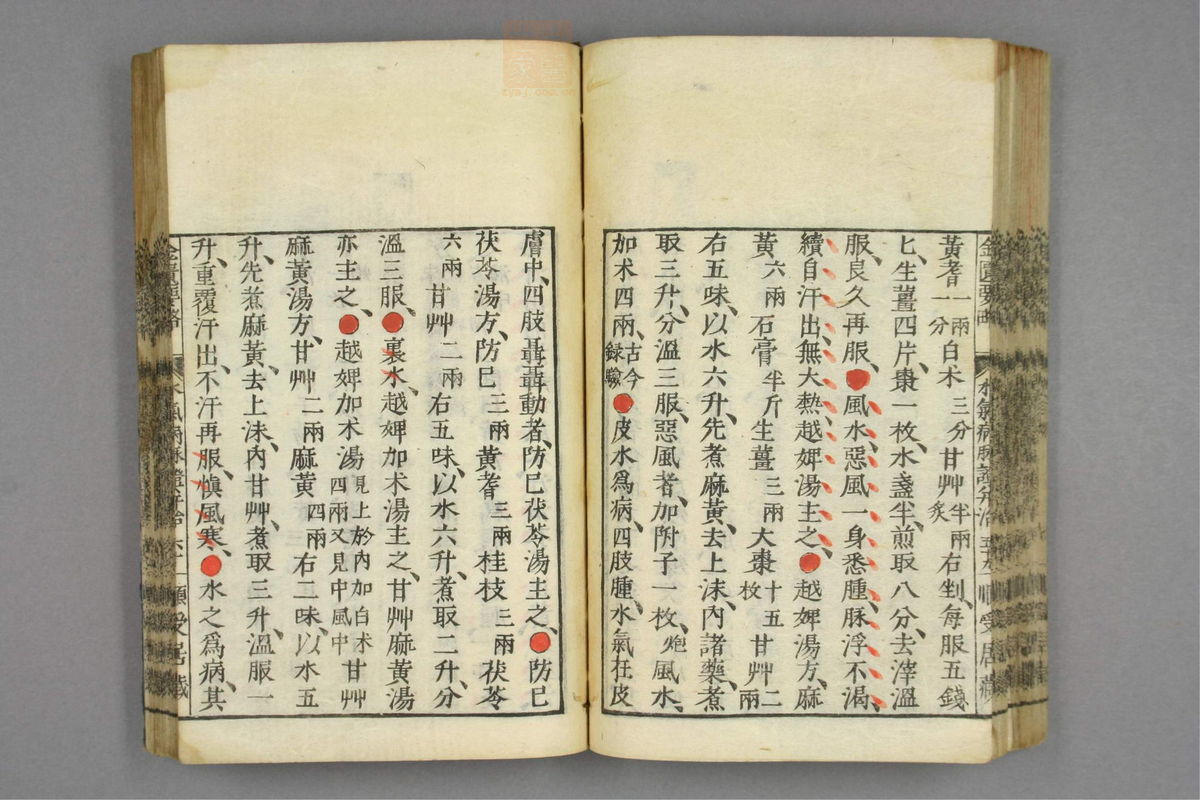 黃耆一兩一分白朮三分甘艸半兩炙右剉每服五錢
匕、生薑四片、棗一枚、水盞半、煎取八分、去滓溫
服、良久再服、●風水、惡風一身悉腫、脉浮不渴、
續自汗出、無大熱、越婢湯主之、●越婢湯方、麻
黃六兩石膏半斤生薑三兩大棗十五枚甘艸二兩
右五味、以水六升、先煮麻黃、去上沫、內諸藥、煮
取三升、分溫三服、惡風者、加附子一枚、炮風水、
加朮四兩、古今録驗●皮水爲病、四肢腫、水氣在皮
膚中、四肢聶聶動者、防巳茯苓湯主之、●防巳
茯苓湯方、防巳三兩黃耆三兩桂枝三兩茯苓
六兩甘艸二兩右五味、以水六升、煮取二升、分
溫三服、●裏水、越婢加朮湯主之、甘艸麻黃湯
亦主之、●越婢加朮湯見上於內加白朮四兩又見中風中甘艸
麻黃湯方、甘艸二兩麻黃四兩右二味、以水五
升、先煮麻黃、去上沫、內甘艸、煮取三升、溫服一
升、重覆汗出、不汗再服、愼風寒、●水之爲病、其